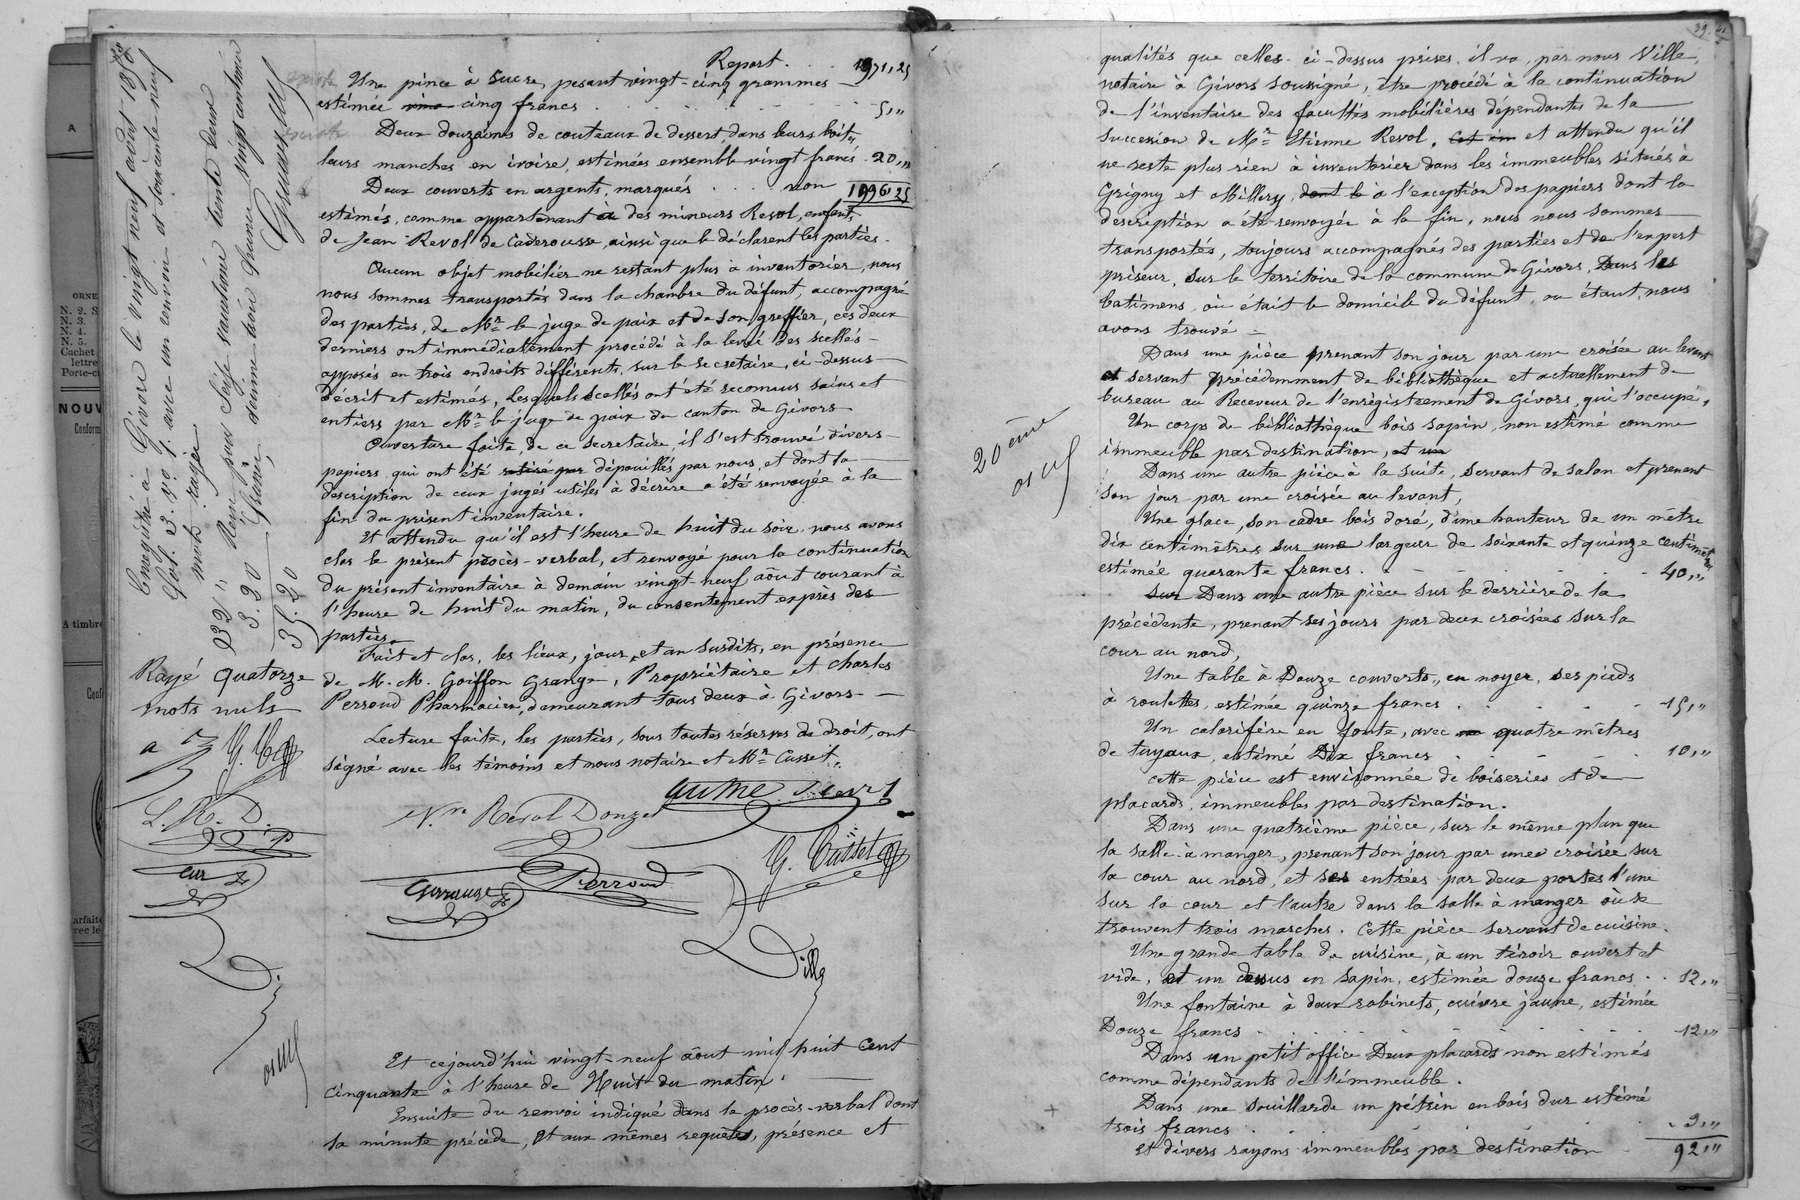 Report . . . 1971,25
Une pince à sucre, pesant vingt-cinq grammes
estimée cinq francs . . . 5,"
Deux douzaines de couteaux de dessert, dans leurs boites
leurs manches en ivoire, estimées ensemble vingt francs . 20,"
Deux couverts en argents, marqués . . . non 1996,25
estimés, comme appartenant à des mineurs Revol, enfants
de Jean Revol de Caderousse, ainsi que le déclarent les parties.
Aucun objet mobilier ne restant plus à inventorier, nous
nous sommes transportés dans la chambre du défunt, accompagné
des parties, de Mr le juge de paix et de son greffier, ces deux
derniers ont immédiatement procédé à la levée des scellés
apposés en trois endroits différents, sur le secretaire, ci-dessus
décrit et estimés, lesquels scellés ont été reconnus sains et
entiers par Mr le juge de paix du canton de Givors
Ouverture faite, de ce secretaire, il s'est trouvé divers
papiers, qui ont été dépouillés par nous, et dont la
description de ceux jugés utiles à décrire a été renvoyée à la
fin du présent inventaire.
Et attendu qu'il est l'heure de huit du soir, nous avons
clos le présent procès-verbal, et renvoyé pour la continuation
du présent inventaire à demain vingt-neuf août courant à
l'heure de huit du matin, du consentement exprès des
parties.
Fait et clos, les lieux, jour, et an susdits, en présence
de M. M. Goiffon Grange, Propriétaire et Charles
Perroud Pharmacien, demeurant tous deux à Givors
Lecture faite, les parties, sous toutes réserves de droit, ont
signé avec les témoins et nous notaire et Mr Cusset.
Vve Revol Donzel
G. Cusset
Perroud
Et cejourd'hui vingt-neuf août mil huit cent
cinquante à l'heure de Huit du matin.
Ensuite du renvoi indiqué dans le procès-verbal dont
la minute précède, et aux mêmes requêtes, présence et
Enregistré à Givors le vingt neuf août 18
mots rayés
932 "
3.20
35.20
Rayé quatorze
mots nuls
L. R. D.
39
qualités que celles-ci-dessus prises, il va, par nous Ville,
notaire à Givors soussigné, être procédé à la continuation
de l'inventaire des facultés mobilières dépendantes de la
succession de Mr Etienne Revol, et attendu qu'il
ne reste plus rien à inventorier dans les immeubles situés à
Grigny et Millery, à l'exception des papiers dont la
description a été renvoyée à la fin, nous nous sommes
transportés, toujours accompagnés des parties et de l'expert
priseur, sur le territoire de la commune de Givors, Dans les
batimens, où était le domicile du défunt, ou étant, nous
avons trouvé
Dans une pièce prenant son jour par une croisée au levant
et servant précédemment de bibliothèque et actuellement de
bureau au Receveur de l'enrégistrement de Givors, qui l'occupe,
Un corps de bibliothèque bois sapin, non estimé comme
immeuble par destination,
20ème
Dans une autre pièce à la suite, servant de salon et prenant
son jour par une croisée au levant,
Une glace, son cadre bois doré, d'une hauteur de un mêtre
dix centimêtres sur une largeur de soixante et quinze centimètres
estimée quarante francs . . . 40,"
Dans une autre pièce sur le derrière de la
précédente, prenant ses jours par deux croisées sur la
cour au nord,
Une table à Douze couverts, en noyer, ses pieds
à roulettes, estimée quinze francs . . . 15,"
Un calorifère en fonte, avec quatre mêtres
de tuyaux, estimé Dix francs . . . 10,"
Cette pièce est environnée de boiseries et de
placards, immeubles par destination.
Dans une quatrième pièce, sur le même plan que
la salle à manger, prenant son jour par une croisée sur
la cour au nord, et ses entrées par deux portes l'une
sur la cour et l'autre dans la salle à manger où se
trouvent trois marches. Cette pièce servant de cuisine.
Une grande table de cuisine, à un tiroir ouvert et
vide, et un dessus en sapin, estimée douze francs . . 12,"
Une fontaine à deux robinets, cuivre jaune, estimée
Douze francs . . . 12,"
Dans un petit office Deux placards non estimés
comme dépendants de l'immeuble.
Dans une souillarde un pétrin en bois dur estimé
trois francs . . . 3,"
et divers rayons immeubles par destination 92,"